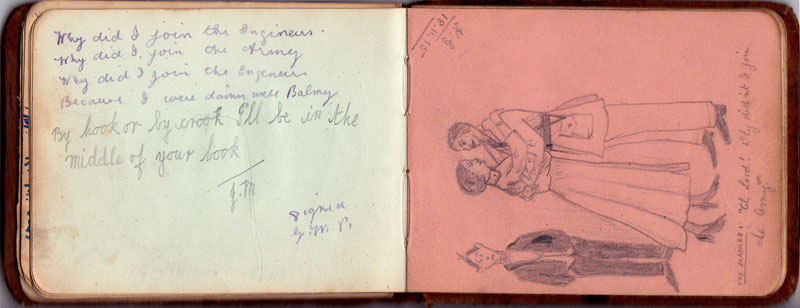 Why did I join the Engineers.
Why did I join the Army
Why did I join the Engeneers
Because I were damn well Balmy
By hook or by crook I'll be in the
middle of your book
J.M
Signed
18.11.15
Lord! Why didn't I join
the Army"